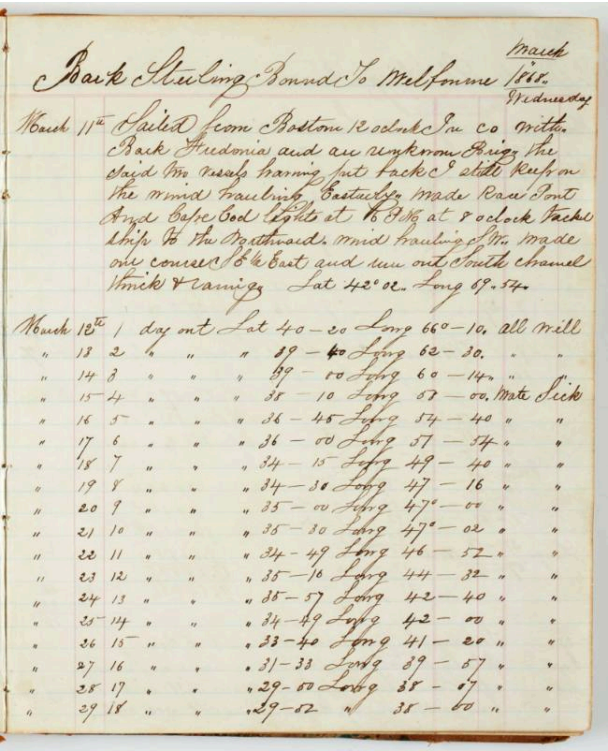 March
Bark Sterling Bound To Melbourne 1868.
Wednesday
March 11th Sailed from Boston 12 oclock In co with
Bark Fredonia and an unknown Brig, the
said two vessels having put back I still keep on
the wind hauling Easterly, made Race Point
And Cape Cod lights at 8 oclock tacked
ship to the Northward. wind hauling S.W. made
our course East and run out South channel
thick & raining Lat 42° 02. Long 69. 54.
March 12th 1 day out Lat 40 - 20 Long 66° - 10. all well
" 13 2 " " " 39 - 40 Long 62 - 30. " "
" 14 3 " " " 39 - 00 Long 60 - 14 " "
" 15 4 " " " 38 - 10 Long 58 - 00. Mate Sick
" 16 5 " " " 36 - 45 Long 54 - 40 " "
" 17 6 " " " 36 - 00 Long 51 - 54 " "
" 18 7 " " " 34 - 15 Long 49 - 40 " "
" 19 8 " " " 34 - 30 Long 47 - 16 " "
" 20 9 " " " 35 - 00 Long 47° - 00 " "
" 21 10 " " " 35 - 30 Long 47° - 02 " "
" 22 11 " " " 34 - 49 Long 46 - 52 " "
" 23 12 " " " 35 - 16 Long 44 - 32 " "
" 24 13 " " " 35 - 57 Long 42 - 40 " "
" 25 14 " " " 34 - 49 Long 42 - 00 " "
" 26 15 " " " 33 - 40 Long 41 - 20 " "
" 27 16 " " " 31 - 33 Long 39 - 57 " "
" 28 17 " " " 29 - 50 Long 38 - 07 " "
" 29 18 " " " 29 - 02 " 38 - 00 " "